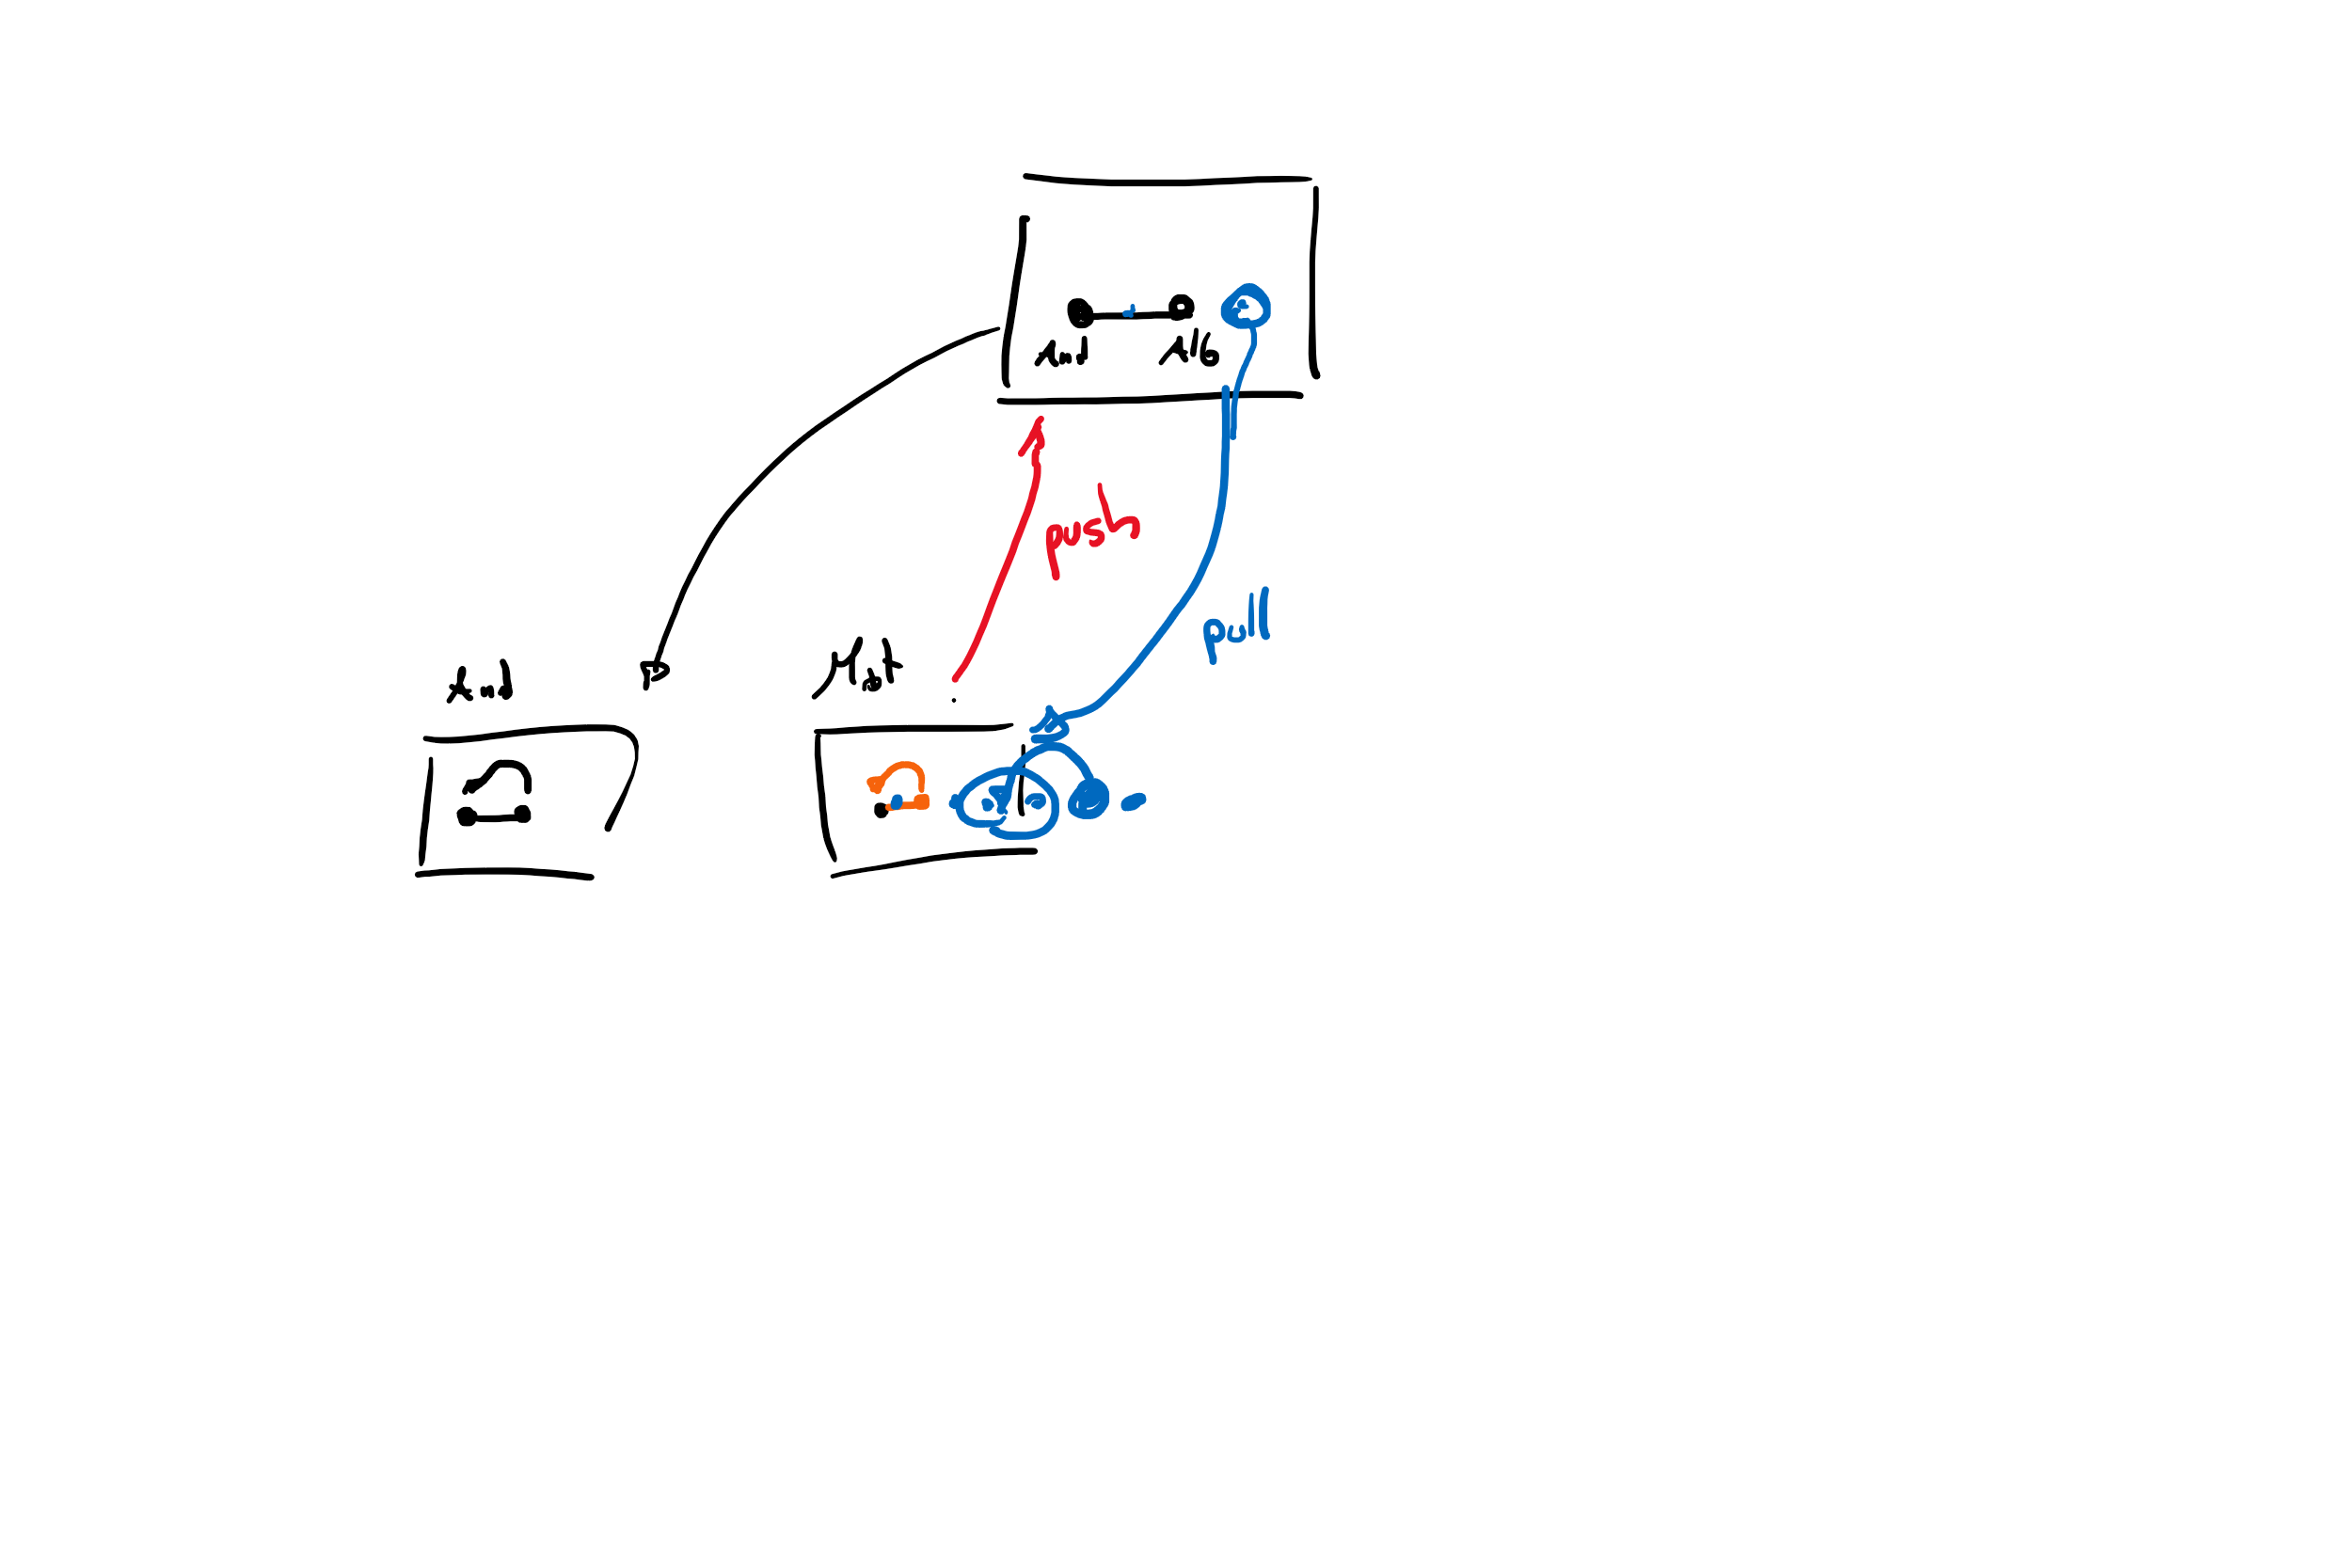 And Alb
push
pull
And Mat